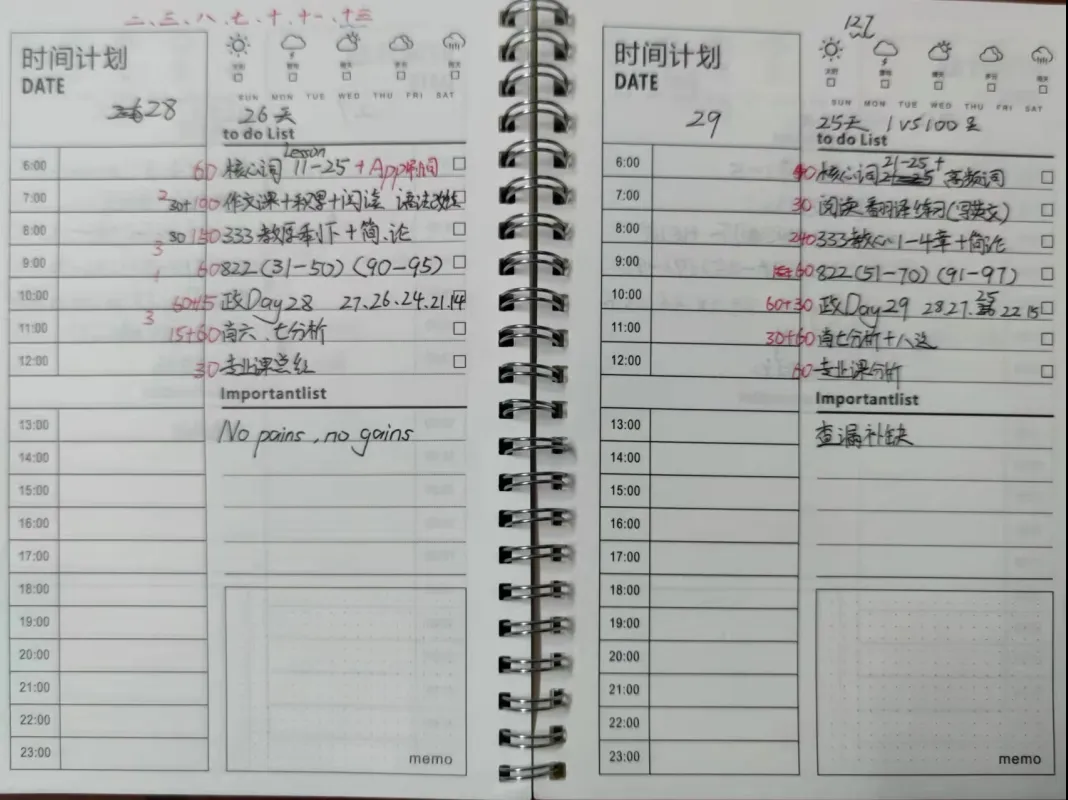 二、三、八、七、十、十一、十三
时间计划
DATE
28
SUN MON TUE WED THU FRI SAT
26天
to do List
Lesson
6:00 60 核心词 11-25 + App时间
7:00 2 30+100 作文课+积累+阅读 语法
8:00 3 30 150 333教原 下+简、论
9:00 1 60 822(31-50)(90-95)
10:00 60+15 政Day28 27.26.24.21.14
11:00 3 15+60 肖六、七分析
12:00 30 专业课点红
Importantlist
No pains, no gains
13:00
14:00
15:00
16:00
17:00
18:00
19:00
20:00
21:00
22:00
23:00
memo
127
时间计划
DATE
29
SUN MON TUE WED THU FRI SAT
25天 1 VS 100
to do List
21-25+
6:00 核心词 高频词
7:00 30 阅读、翻译练习(写英文)
8:00 240 333教心1-4章+简论
9:00 60 822(51-70)(91-97)
25
10:00 60+30 政Day29 28 27. 22 15
11:00 30+60 肖七分析+八选
12:00 60 专业课分析
Importantlist
查漏补缺
13:00
14:00
15:00
16:00
17:00
18:00
19:00
20:00
21:00
22:00
23:00
memo